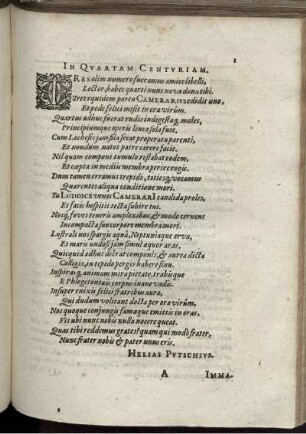 1
IN QVARTAM CENTVRIAM.
TRES olim numero fueramus amice libelli,
Lector, habes quarti nunc nova dona tibi.
Tres equidem partu CAMERARIVS edidit uno,
Et pede felici misit in ora virûm.
Quartus adhuc fuerat rudis indigestaq, moles,
Principiumque operis linea sola fuit.
Cum Lachesis jam fila secat properata parenti,
Et nondum natos patre carere facit.
Nil quam componi tumulo restabat eodem,
Et capta in mediis membra perire rogis.
Dum tamen erramus trepidi, tacitoq, vocamus
Quarentes aliqua conditione mori.
Tu LUDOICE venis CAMERARI candida proles,
Et facis hospitii tecta subire tui.
Nosq, foves teneris amplexibus, & modo cernens
Incompacta suo corpore membra mori.
Lustrali nos spargis aquâ, Neptuniaque arva,
Et maris undosi jam sinit aquor aras,
Quicquid adhuc deerat componis, & aurea dicta
Colligis, in tepido pergis habere sinu.
Inspirasq, animam mira pietate, trahisque
E Phlegetontaeis corpus inane vadis.
Insuper enixis felici fratribus aura,
Qui dudum volitant docta per ora virûm,
Nos quoque conjungis famaque emittis in oras,
Vis ubi nunc nobis nulla nocere queat.
Quas tibi reddemus grates? quam qui modò frater,
Nunc frater nobis & pater unus eris.
HELIAS PVTSCHIVS.
A
IMMA-